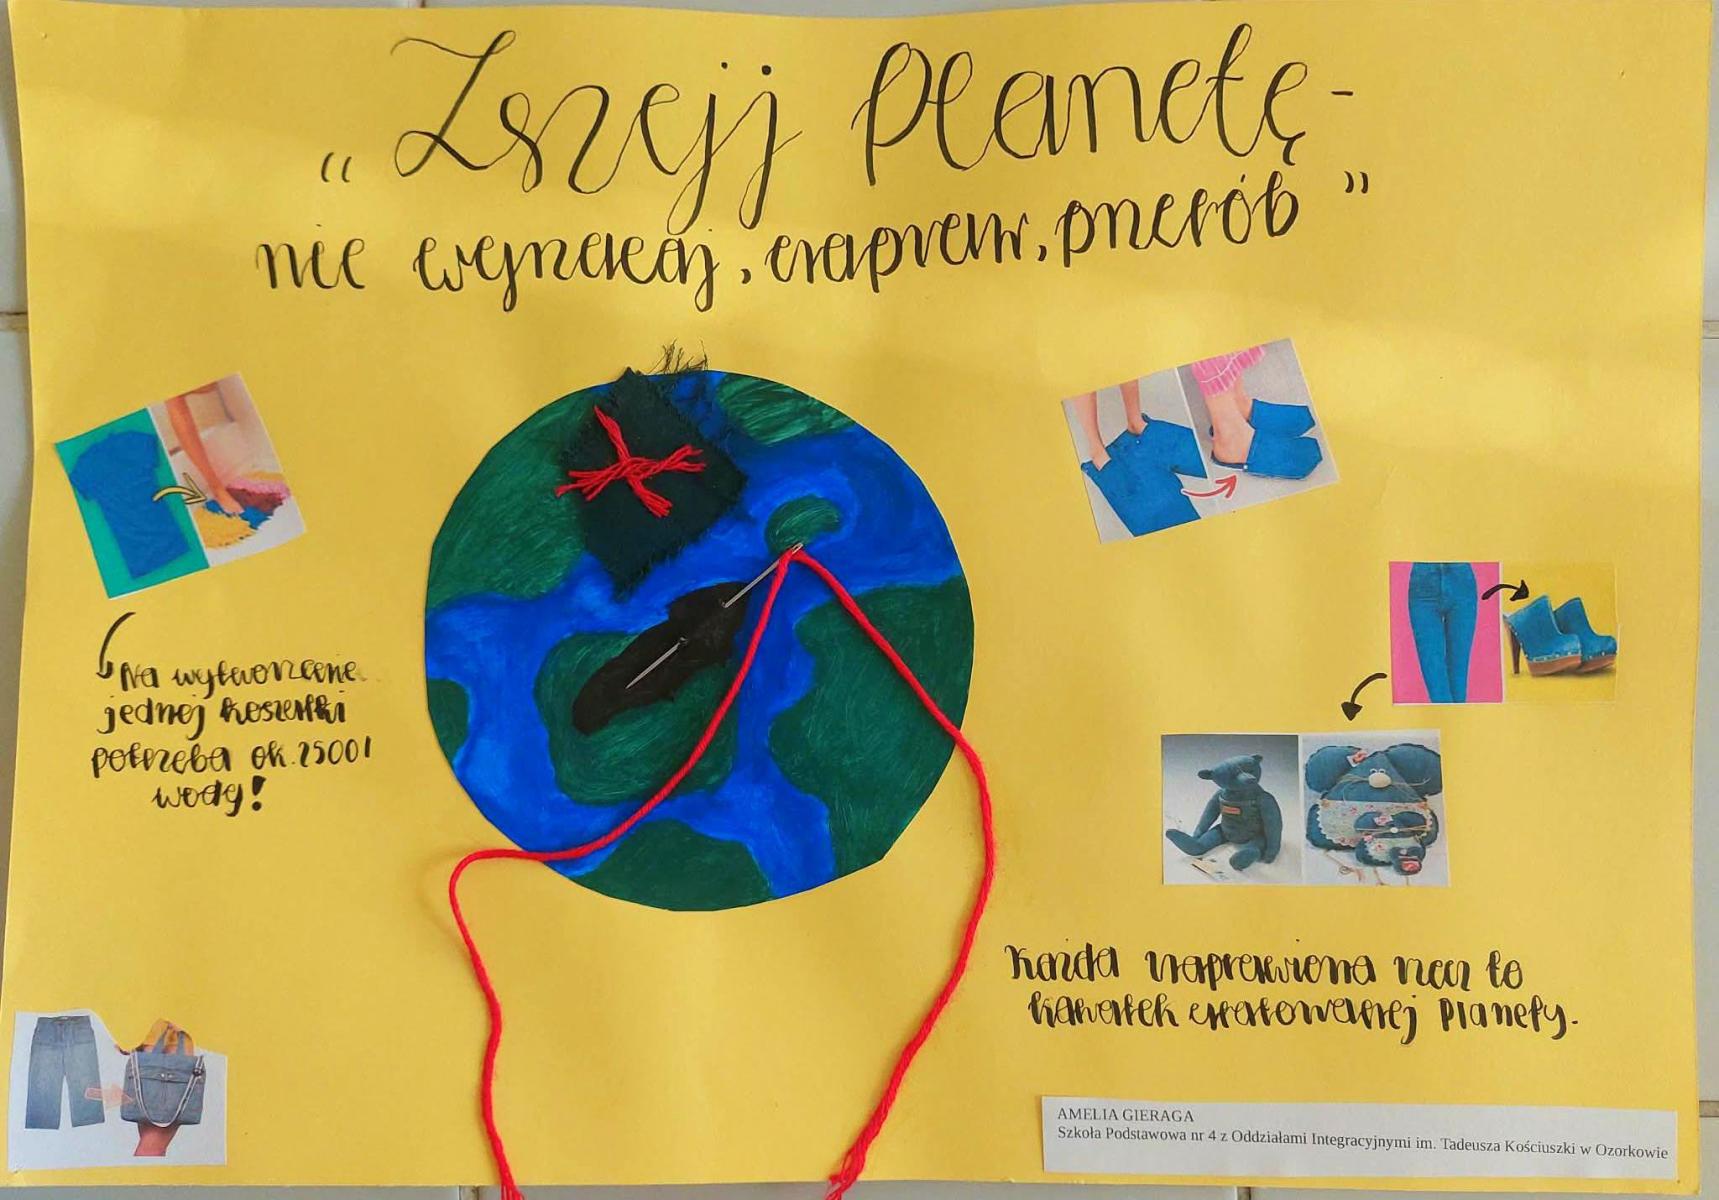 „Zszyj planetę-
nie wyrzucaj, napraw, przerób”
Na wytworzenie
jednej koszulki
potrzeba ok. 2500l
wody!
Każda naprawiona rzecz to
kawałek uratowanej planety.
AMELIA GIERAGA
Szkoła Podstawowa nr 4 z Oddziałami Integracyjnymi im. Tadeusza Kościuszki w Ozorkowie